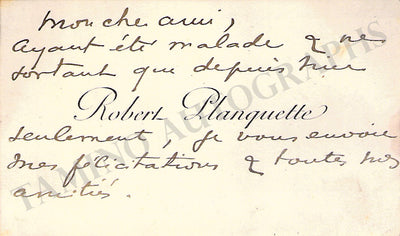 Mon cher ami,
Ayant été malade & ne
sortant que depuis hier
Robert Planquette
seulement, je vous envoie
mes félicitations & toutes mes
amitiés.
TAMINO AUTOGRAPHS